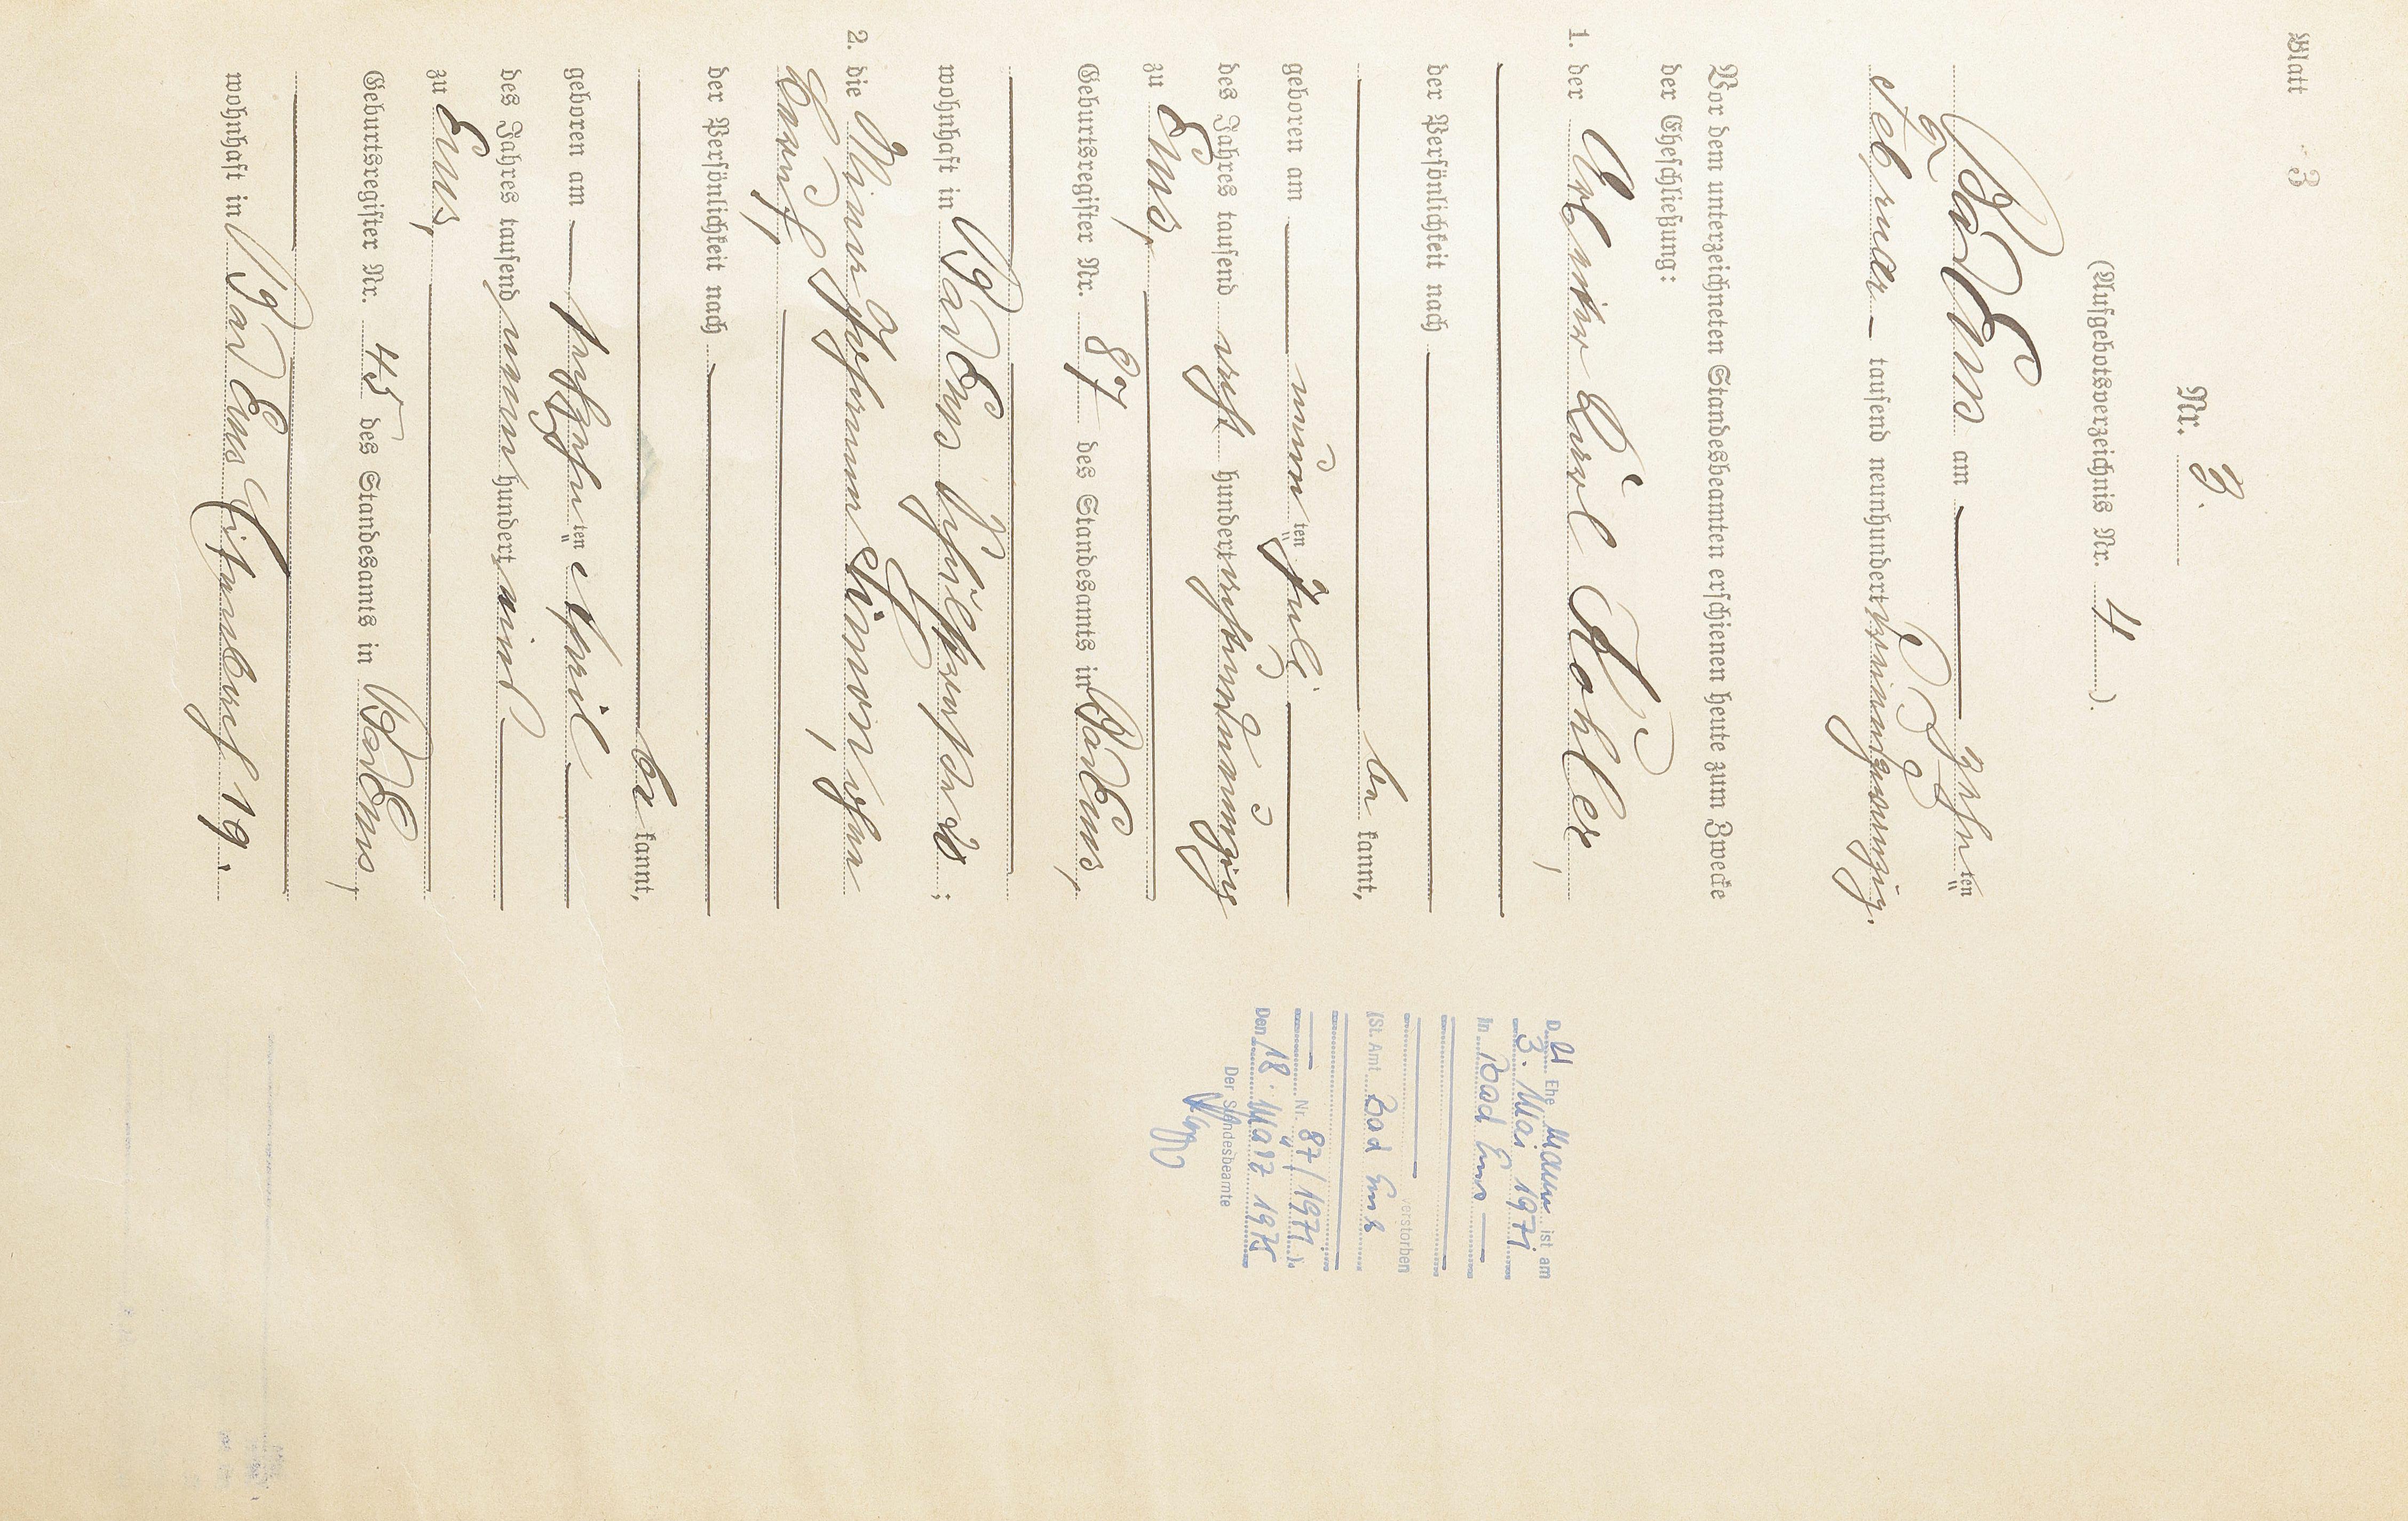 Blatt 3
Nr. 3.
(Aufgebotsverzeichnis Nr. 4).
Bad Ems am zehnten
Februar tausend neunhundert dreiundzwanzig.
Vor dem unterzeichneten Standesbeamten erschienen heute zum Zwecke
der Eheschließung:
1. der Arbeiter Karl Kohler,
der Persönlichkeit nach
be kannt,
geboren am neun ten Juli
des Jahres tausend acht hundert achtundneunzig
zu Ems,
Geburtsregister Nr. 87 des Standesamts in Bad Ems,
wohnhaft in Bad Ems ;
2. die Johanna Simon, ohne
Beruf,
der Persönlichkeit nach
be kannt,
geboren am sechzehn ten April
des Jahres tausend neun hundert eins
zu Ems,
Geburtsregister Nr. 45 des Standesamts in Bad Ems,
wohnhaft in Bad Ems 19.
Der Ehe Mann ist am
3. Mai 1971
in Bad Ems
verstorben
(St. Amt Bad Ems
Nr. 87/1971).
Den 18. März 1975
Der Standesbeamte